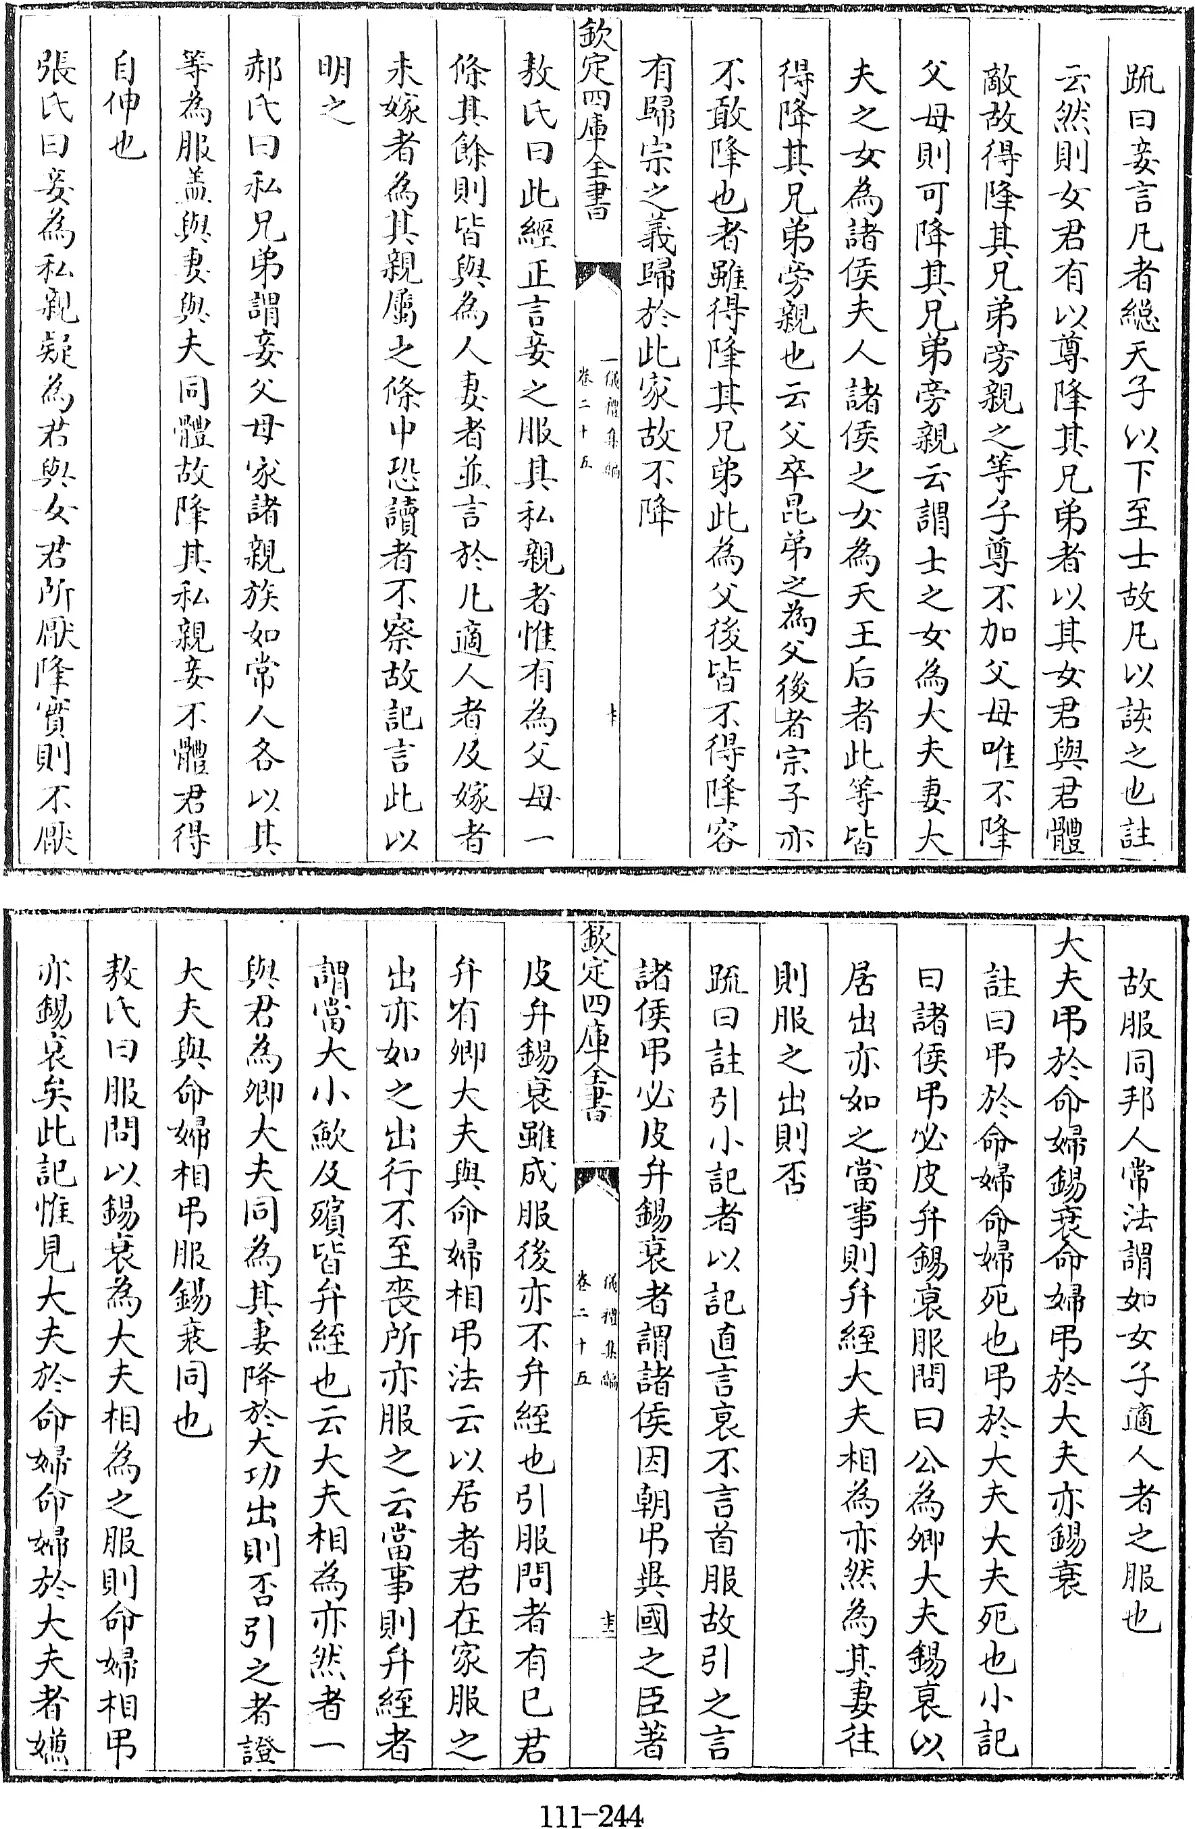 疏曰妾言凡者緫天子以下至士故凡以該之也註
云然則女君有以尊降其兄弟者以其女君與君體
敵故得降其兄弟旁親之等子尊不加父母唯不降
父母則可降其兄弟旁親云謂士之女為大夫妻大
夫之女為諸侯夫人諸侯之女為天王后者此等皆
得降其兄弟旁親也云父卒昆弟之為父後者宗子亦
不敢降也者雖得降其兄弟此為父後皆不得降容
有歸宗之義歸於此家故不降
欽定四庫全書
儀禮集編
卷二十五
敖氏曰此經正言妾之服其私親者惟有為父母一
條其餘則皆與為人妻者並言於凡適人者及嫁者
未嫁者為其親屬之條中恐讀者不察故記言此以
明之
郝氏曰私兄弟謂妾父母家諸親族如常人各以其
等為服盖與妻與夫同體故降其私親妾不體君得
自伸也
張氏曰妾為私親疑為君與女君所厭降實則不厭
故服同邦人常法謂如女子適人者之服也
大夫弔於命婦錫衰命婦弔於大夫亦錫衰
註曰弔於命婦命婦死也弔於大夫大夫死也小記
曰諸侯弔必皮弁錫衰服問曰公為卿大夫錫衰以
居出亦如之當事則弁絰大夫相為亦然為其妻往
則服之出則否
疏曰註引小記者以記直言衰不言首服故引之言
諸侯弔必皮弁錫衰者謂諸侯因朝弔異國之臣著
欽定四庫全書
儀禮集編
卷二十五
皮弁錫衰雖成服後亦不弁絰也引服問者有已君
弁有卿大夫與命婦相弔法云以居者君在家服之
出亦如之出行不至喪所亦服之云當事則弁絰者
謂當大小歛及殯皆弁絰也云大夫相為亦然者一
與君為卿大夫同為其妻降於大功出則否引之者證
大夫與命婦相弔服錫衰同也
敖氏曰服問以錫衰為大夫相為之服則命婦相弔
亦錫衰矣此記惟見大夫於命婦命婦於大夫者嫌
111-244